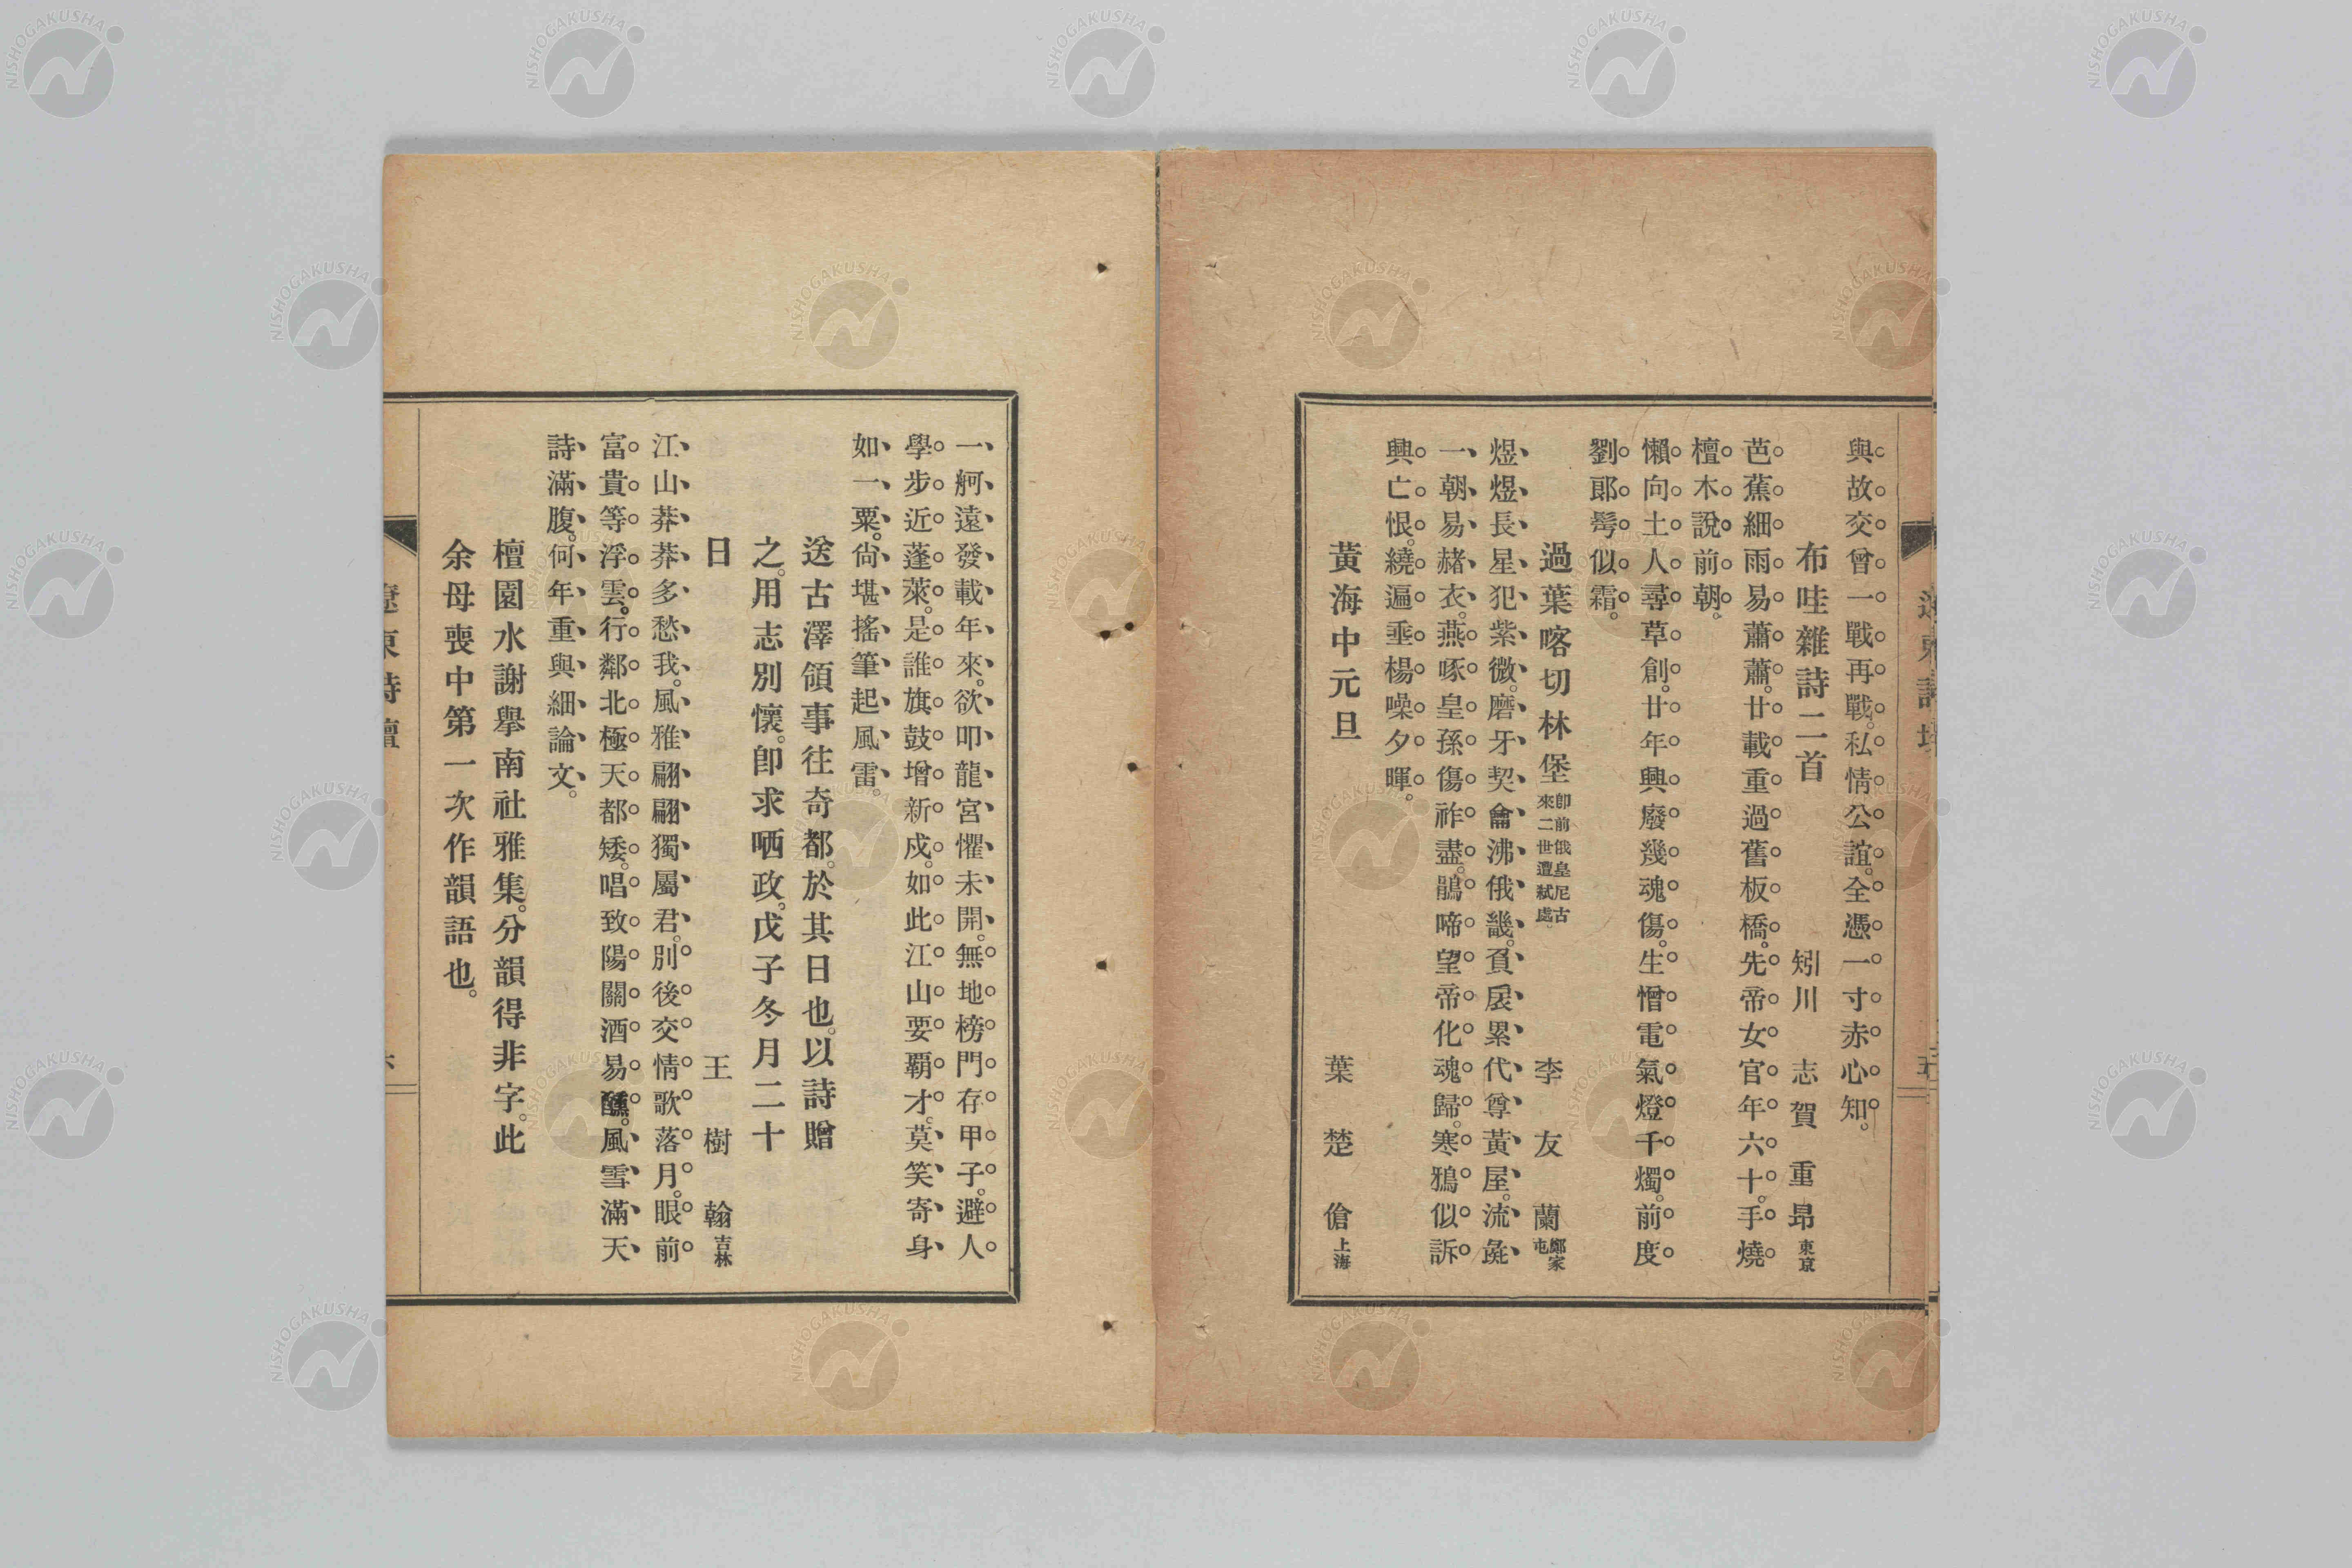 與故交曾一戰再戰。私情公誼。全憑一寸赤心知。
布哇雜詩二首 矧川 志賀重昂 東京
芭蕉細雨易蕭蕭。廿載重過舊板橋。先帝女官年六十。手燒
檀木說前朝。
懶向土人尋草創。廿年興廢幾魂傷。生憎電氣燈千燭。前度
劉郎髩似霜。
過葉喀切林堡 卽前俄皇尼古來二世遭弑處 李友蘭 鄭家屯
煜煜長星犯紫微。磨牙契龠沸俄畿。負扆累代尊黃屋。流彘
一朝易赭衣。燕啄皇孫傷祚盡。鵑啼望帝化魂歸。寒鴉似訴
興亡恨。繞遍垂楊噪夕暉。
黃海中元旦 葉楚傖 上海
一舸遠發載年來。欲叩龍宮懼未開。無地榜門存甲子。避人
學步近蓬萊。是誰旗鼓增新戍。如此江山要霸才。莫笑寄身
如一粟。尙堪搖筆起風雷。
送古澤領事往奇都。於其日也。以詩贈
之。用志別懷。卽求哂政。戊子冬月二十
日 王樹翰 吉林
江山莽莽多愁我。風雅翩翩獨屬君。別後交情歌落月。眼前
富貴等浮雲。行鄰北極天都矮。唱致陽關酒易醺。風雪滿天
詩滿腹。何年重與細論文。
檀園水謝擧南社雅集。分韻得非字。此
余母喪中第一次作韻語也。
遼東詩壇
NISHOGAKUSHA